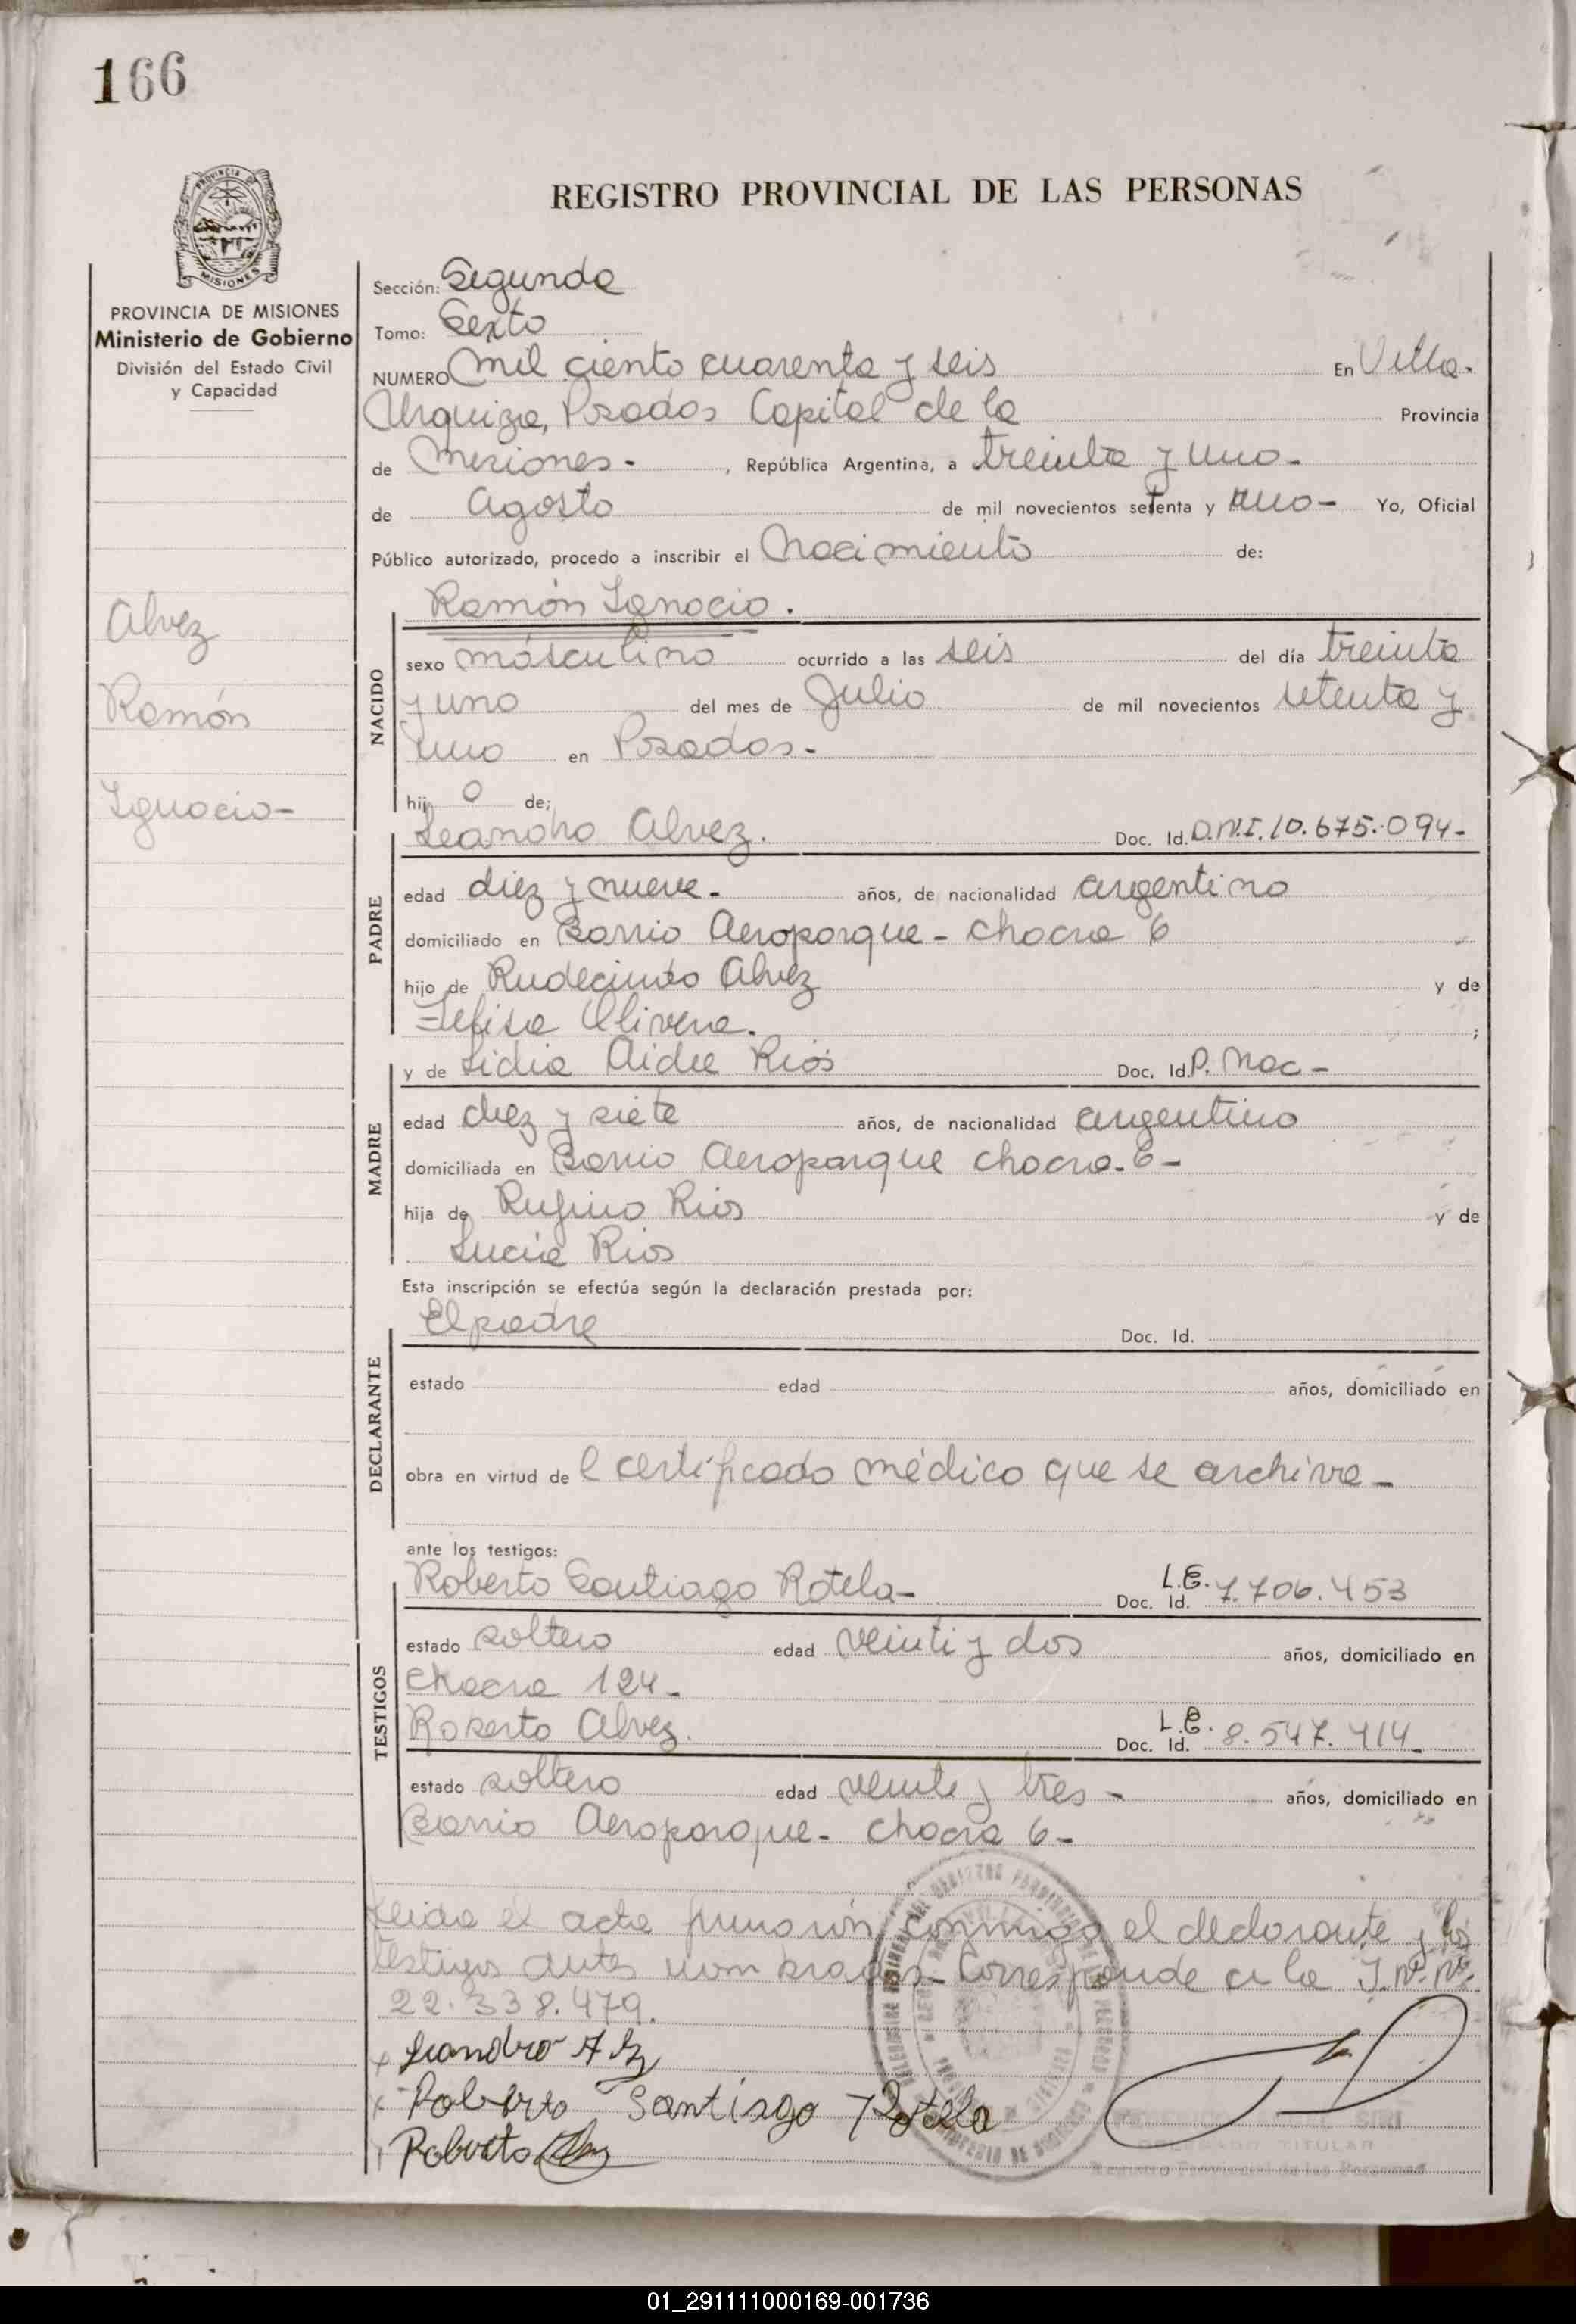 166
REGISTRO PROVINCIAL DE LAS PERSONAS
PROVINCIA DE MISIONES
Ministerio de Gobierno
División del Estado Civil
y Capacidad
Sección: Segunda
Tomo: Sexto
NUMERO Mil ciento cuarenta y seis En Villa.
Urquiza, Posadas Capital de la Provincia
de Misiones - , República Argentina, a treinta y uno -
de Agosto de mil novecientos setenta y uno - Yo, Oficial
Público autorizado, procedo a inscribir el Nacimiento de:
Alvez
Ramón
Ignacio -
NACIDO
Ramón Ignacio.
sexo másculino ocurrido a las seis del día treinta
y uno del mes de Julio de mil novecientos setenta y
uno en Posadas -
hijo de;
PADRE
Leandro Alvez. Doc. Id. D.N.I. 10.675.094 -
edad diez y nueve - años, de nacionalidad argentino
domiciliado en Barrio Aeroparque - chacra 6
hijo de Rudecindo Alvez y de
Felisa Olivera. ;
MADRE
y de Lidia Aidee Rios Doc. Id. P. Nac -
edad diez y siete años, de nacionalidad argentina
domiciliada en Barrio Aeroparque chacra - 6 -
hija de Rufino Rios y de
Lucia Rios
Esta inscripción se efectúa según la declaración prestada por:
DECLARANTE
El padre Doc. Id.
estado edad años, domiciliado en
obra en virtud de l certificado médico que se archiva -
ante los testigos:
TESTIGOS
Roberto Santiago Rotela - Doc. Id. L.E. 7.706.453
estado soltero edad veinti y dos años, domiciliado en
Chacra 124 -
Roberto Alvez. Doc. Id. L.E. 8.547.414
estado soltero edad veinte y tres - años, domiciliado en
Barrio Aeroparque - chacra 6 -
Leida el acta firmarón conmigo el declarante y los
testigos antes nombrados - Corresponde a la
22.338.479.
Leandro
Roberto Santiago Rotela
Roberto
TITULAR
Registro Provincial de las Personas
01_291111000169-001736